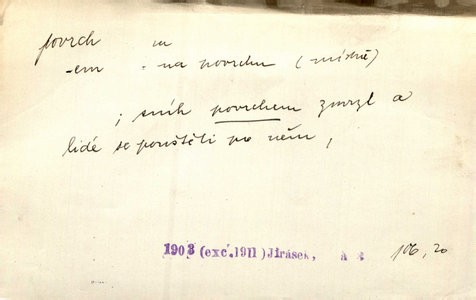 povrch m
-em - na povrchu (místně)
; sníh povrchem zmrzl a
lidé se pouštěli po něm,
1903 (exc.1911) Jirásek, 106, 20